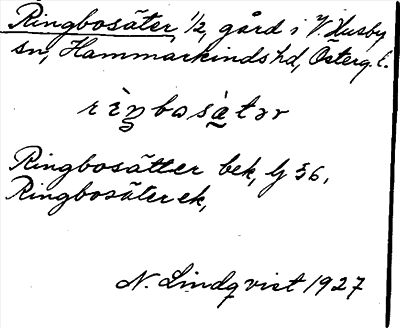 Ringbosäter, 1/2, gård i V. Husby
sn, Hammarkinds hd, Österg. l.
rìŋbosä̀tər
Ringbosätter bek, G 36,
Ringbosäter ek,
N. Lindqvist 1927